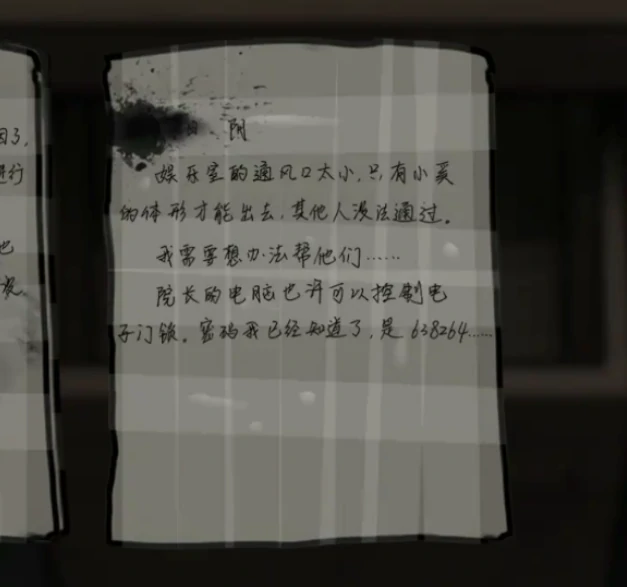 因了,
进行
也
日 阴
娱乐室的通风口太小,只有小奚
的体形才能出去,其他人没法通过。
我需要想办法帮他们……
院长的电脑也许可以控制电
子门锁。密码我已经知道了,是638264……